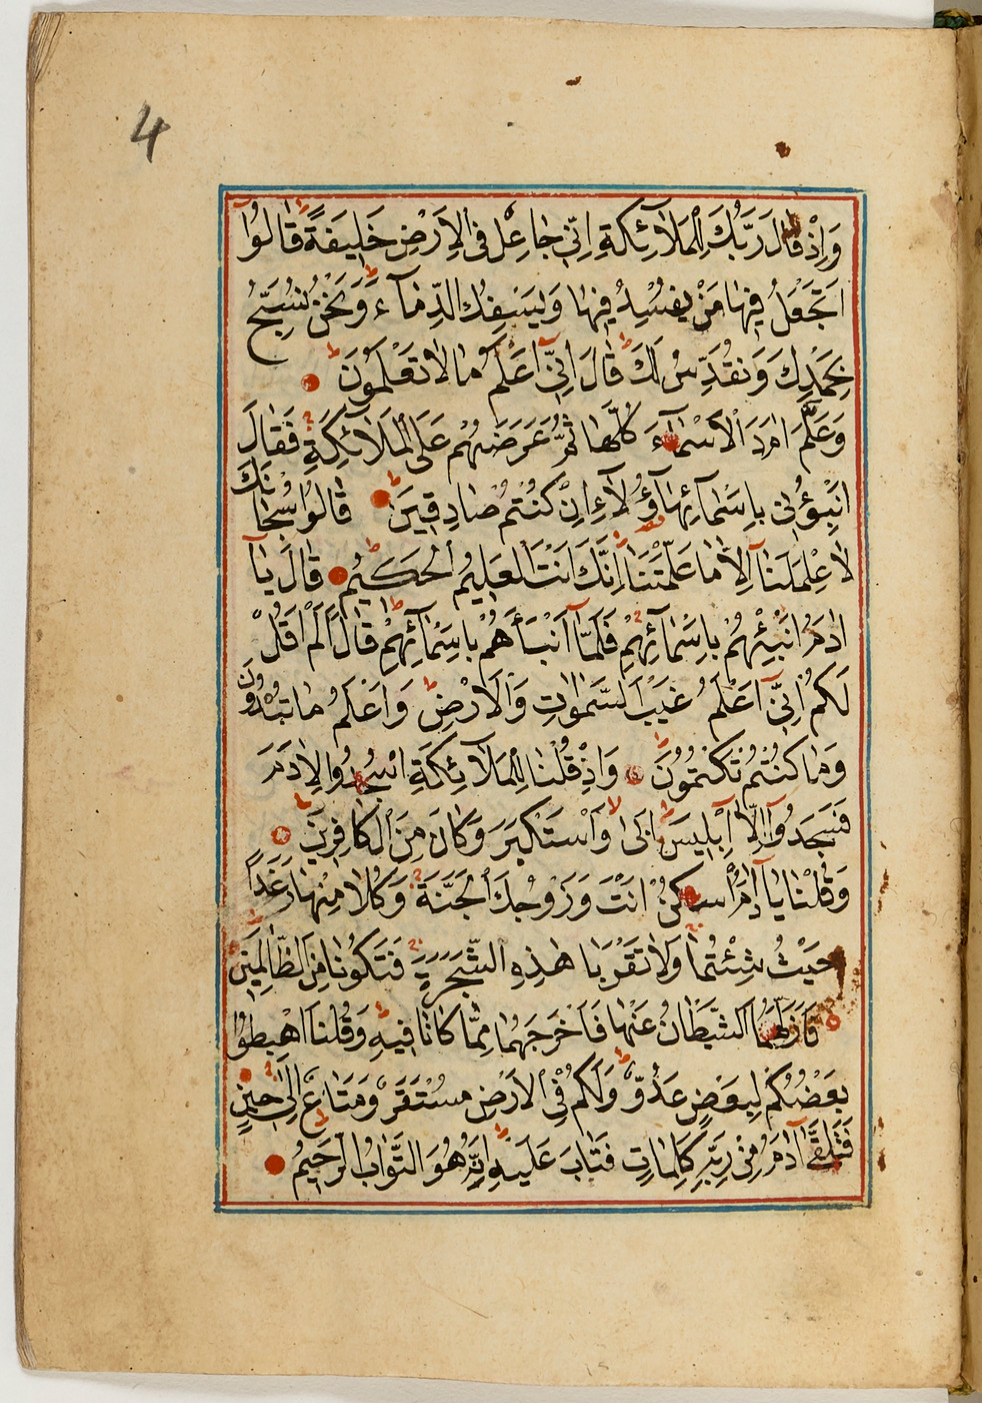 4
وَاِذْ قَالَ رَبُّكَ لِلْمَلآئِكَةِ اِنّٖى جَاعِلٌ فِى الْاَرْضِ خَلِيفَةً قَالُوٓا
اَتَجْعَلُ فِيهَا مَنْ يُفْسِدُ فِيهَا وَيَسْفِكُ الدِّمَآءَ وَنَحْنُ نُسَبِّحُ
بِحَمْدِكَ وَنُقَدِّسُ لَكَ قَالَ اِنّٖىٓ اَعْلَمُ مَا لَا تَعْلَمُونَ
وَعَلَّمَ اٰدَمَ الْاَسْمَآءَ كُلَّهَا ثُمَّ عَرَضَهُمْ عَلَى الْمَلَآئِكَةِ فَقَالَ
اَنْبِؤُنٖى بِاَسْمَآئِ هٰٓاؤُلَآءِ اِنْ كُنْتُمْ صَادِقِينَ قَالُوا سُبْحَانَكَ
لَا عِلْمَ لَنَآ اِلَّا مَا عَلَّمْتَنَا اِنَّكَ اَنْتَ الْعَلِيمُ الْحَكِيمُ قَالَ يَآ
اٰدَمُ اَنْبِئْهُمْ بِاَسْمَآئِهِمْ فَلَمَّآ اَنْبَاَهُمْ بِاَسْمَآئِهِمْ قَالَ اَلَمْ اَقُلْ
لَكُمْ اِنّٖىٓ اَعْلَمُ غَيْبَ السَّمٰوَاتِ وَالْاَرْضِ وَاَعْلَمُ مَا تُبْدُونَ
وَمَا كُنْتُمْ تَكْتُمُونَ وَاِذْ قُلْنَا لِلْمَلآئِكَةِ اسْجُدُوا لِاٰدَمَ
فَسَجَدُوٓا اِلَّآ اِبْلِيسَ اَبٰى وَاسْتَكْبَرَ وَكَانَ مِنَ الْكَافِرِينَ
وَقُلْنَا يَآ اٰدَمُ اسْكُنْ اَنْتَ وَزَوْجُكَ الْجَنَّةَ وَكُلَا مِنْهَا رَغَدًا
حَيْثُ شِئْتُمَا وَلَا تَقْرَبَا هٰذِهِ الشَّجَرَةَ فَتَكُونَا مِنَ الظَّالِمِينَ
فَاَزَلَّهُمَا الشَّيْطَانُ عَنْهَا فَاَخْرَجَهُمَا مِمَّا كَانَا فِيهِ وَقُلْنَا اهْبِطُوا
بَعْضُكُمْ لِبَعْضٍ عَدُوٌّ وَلَكُمْ فِى الْاَرْضِ مُسْتَقَرٌّ وَمَتَاعٌ اِلٰى حِينٍ
فَتَلَقّٰٓى اٰدَمُ مِنْ رَبِّهِ كَلِمَاتٍ فَتَابَ عَلَيْهِ اِنَّهُ هُوَ التَّوَّابُ الرَّحِيمُ